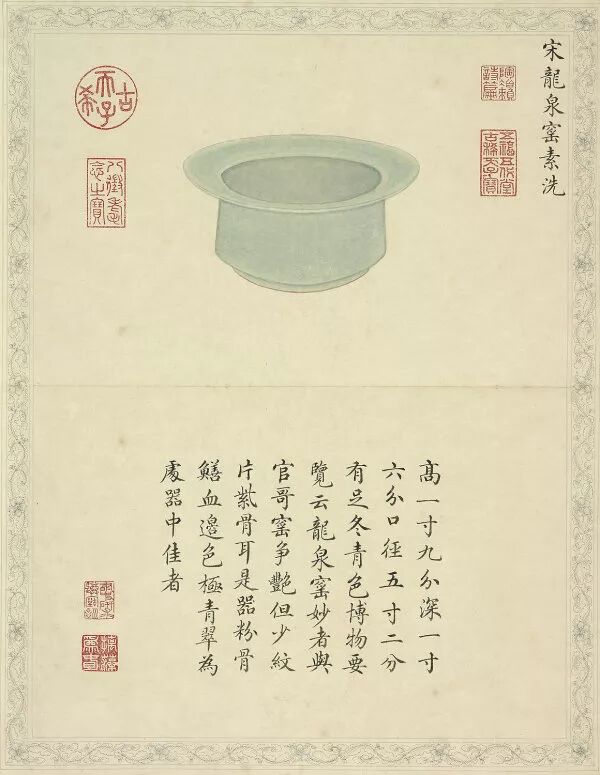 宋龍泉窑素洗
五福五代堂古稀天子寶
古希天子
八徵耄念之寶
髙一寸九分深一寸
六分口徑五寸二分
有足冬青色博物要
覽云龍泉窑妙者與
官哥窑争艷但少紋
片紫骨耳是器粉骨
鱔血邊色極青翠為
處器中佳者